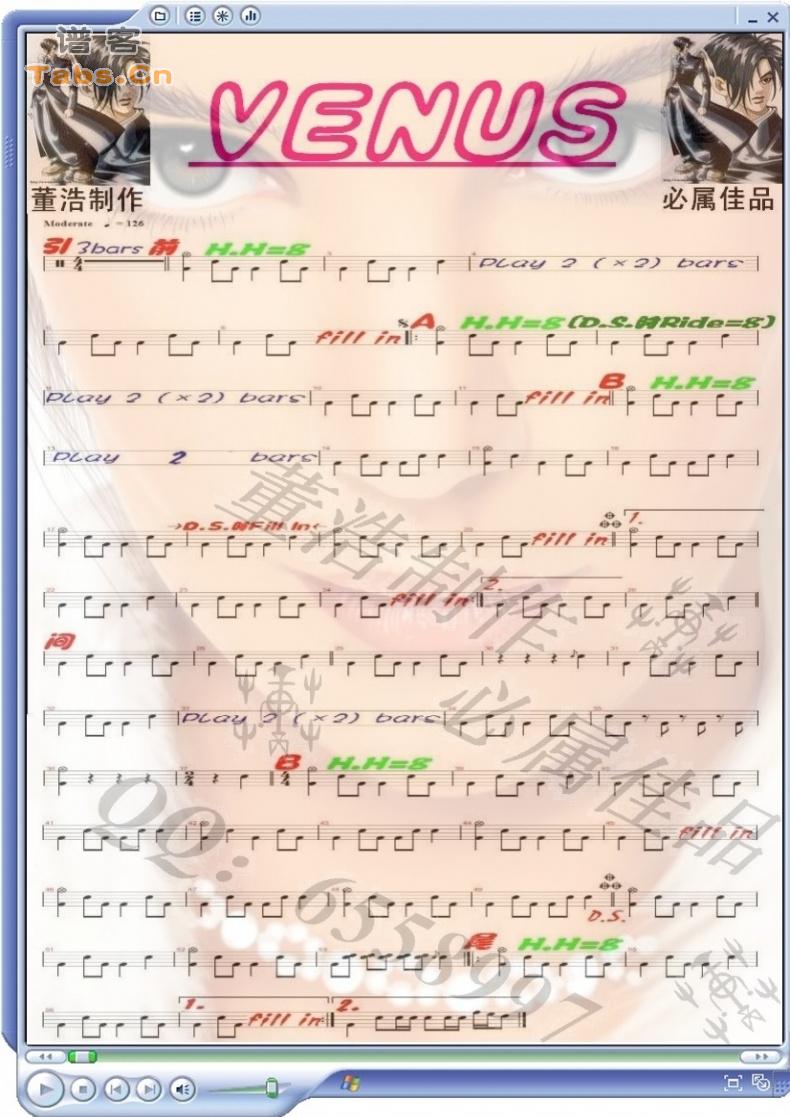 谱客
Tabs.Cn
VENUS
董浩制作
必属佳品
Moderate ♩= 126
引 3bars 前 H.H=8
Play 2 (×2) bars
fill in A H.H=8 (D.S.时Ride=8)
Play 2 (×2) bars fill in B H.H=8
Play 2 bars
D.S.时Fill In fill in 1.
fill in 2.
间
Play 2 (×2) bars
B H.H=8
fill in
D.S.
尾 H.H=8
1. fill in 2.
董浩制作 必属佳品
QQ: 6558997